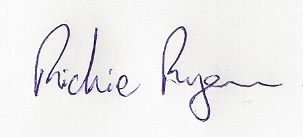 Richie Ryan